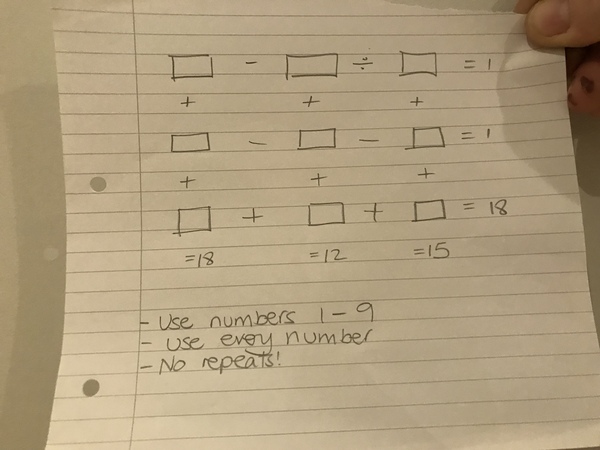 □ - □ ÷ □ = 1
+ + +
□ - □ - □ = 1
+ + +
□ + □ + □ = 18
=18 =12 =15
- Use numbers 1-9
- use every number
- No repeats!